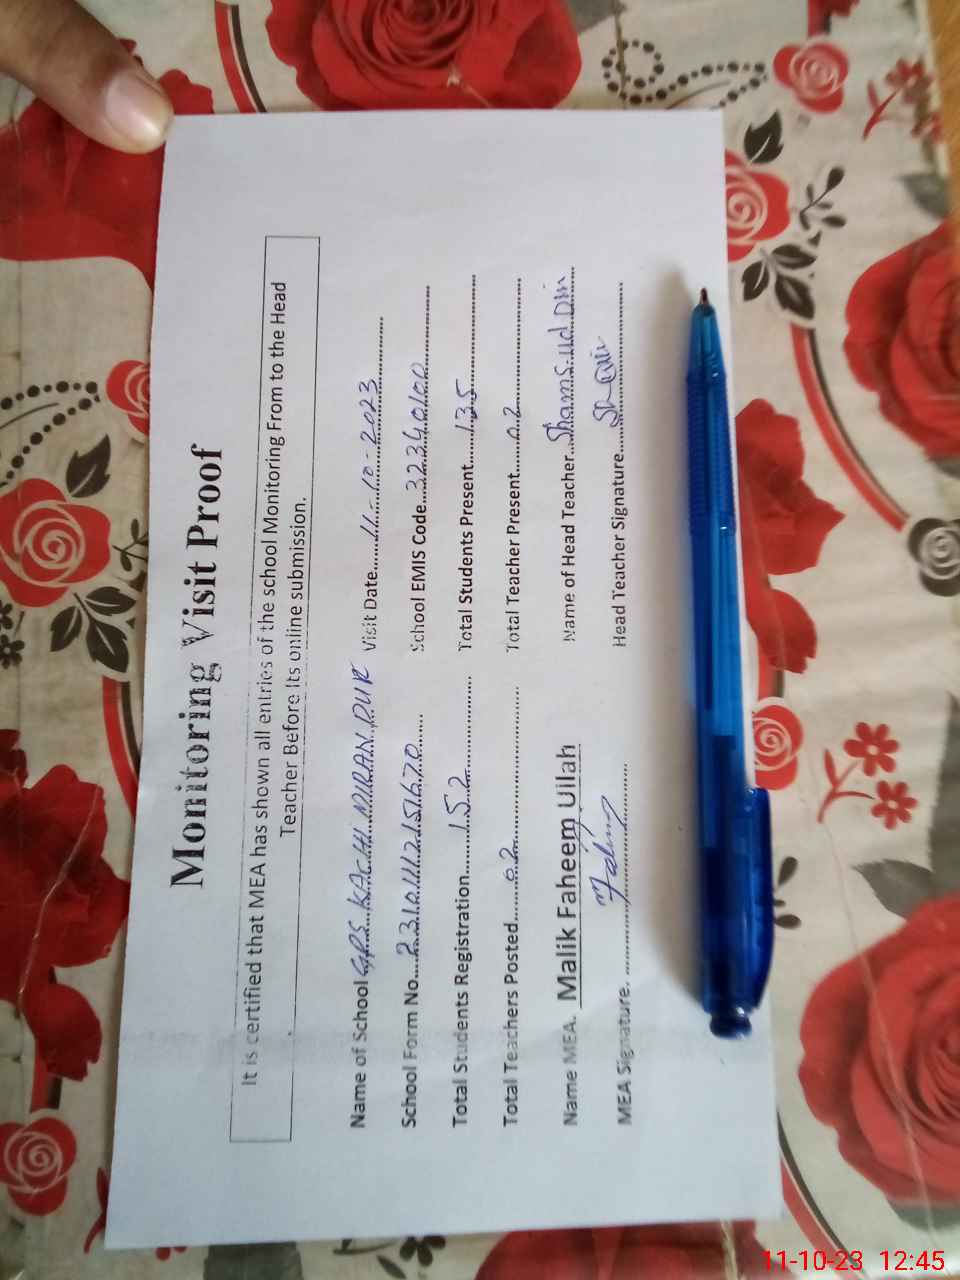 Monitoring Visit Proof
It is certified that MEA has shown all entries of the school Monitoring From to the Head
Teacher Before Its online submission.
Name of School GPS KACHI NURAN PUR Visit Date 11-10-2023
School Form No. 2310111215670 School EMIS Code 32340100
Total Students Registration 152 Total Students Present 135
Total Teachers Posted 02 Total Teacher Present 02
Name MEA. Malik Faheem Ullah Name of Head Teacher Shams ud Din
MEA Signature. Head Teacher Signature
11-10-23 12:45